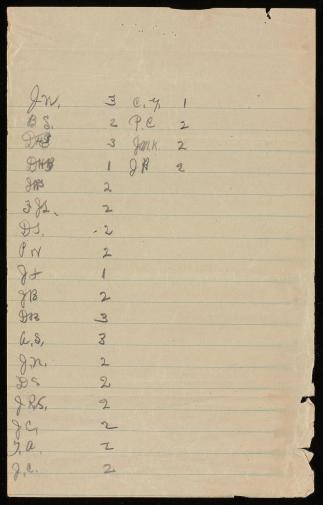 J.W. 3 C.Y. 1
B S. 2 P.C 2
3 Jmk. 2
1 J B 2
2
2
D S. 2
P W 2
J t 1
J B 2
3
A.S. 3
J.N. 2
D S 2
J.R.S. 2
J C. 2
J.A. 2
J.C. 2